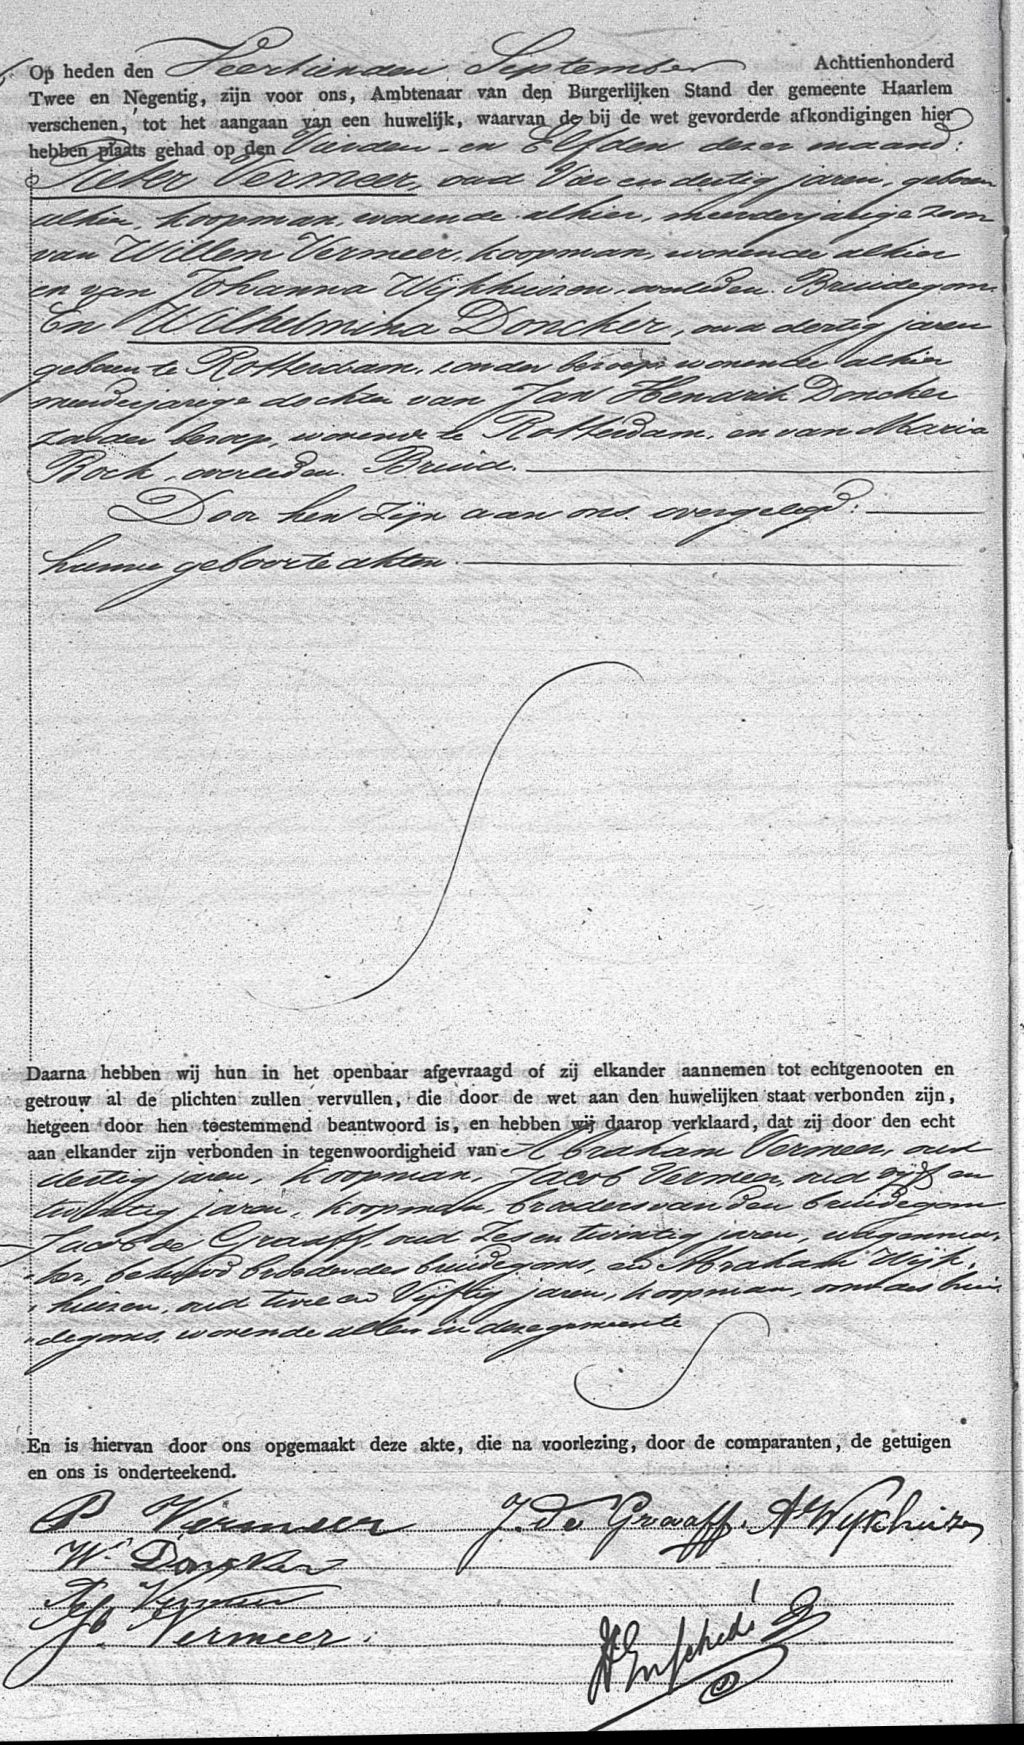 Op heden den Veertienden September Achttienhonderd
Twee en Negentig, zijn voor ons, Ambtenaar van den Burgerlijken Stand der gemeente Haarlem
verschenen, tot het aangaan van een huwelijk, waarvan de bij de wet gevorderde afkondigingen hier
hebben plaats gehad op den Vierden en Elfden dezer maand:
Pieter Vermeer, oud Vier en dertig jaren, geboren
alhier, koopman, wonende alhier, meerderjarige zoon
van Willem Vermeer, koopman, wonende alhier
en van Johanna Wijkhuizen, overleden. Bruidegom.
En Wilhelmina Doncker, oud dertig jaren
geboren te Rotterdam, zonder beroep, wonende alhier
meerderjarige dochter van Jan Hendrik Doncker
zonder beroep, wonende te Rotterdam, en van Maria
Bock, overleden. Bruid.
Door hen zijn aan ons overgelegd:
hunne geboorteakten.
Daarna hebben wij hun in het openbaar afgevraagd of zij elkander aannemen tot echtgenooten en
getrouw al de plichten zullen vervullen, die door de wet aan den huwelijken staat verbonden zijn,
hetgeen door hen toestemmend beantwoord is, en hebben wij daarop verklaard, dat zij door den echt
aan elkander zijn verbonden in tegenwoordigheid van Abraham Vermeer, oud
dertig jaren, koopman, Jacob Vermeer, oud vijf en
twintig jaren, koopman, broeders van den bruidegom
Jacob de Graaff, oud Zes en twintig jaren, wagenma-
ker, behuwd broeder des bruidegoms, en Abraham Wijk-
huizen, oud twee en Vijftig jaren, koopman, oom des brui-
degoms, wonende allen in deze gemeente
En is hiervan door ons opgemaakt deze akte, die na voorlezing, door de comparanten, de getuigen
en ons is onderteekend.
P Vermeer J. de Graaff. Ab Wijkhuizen
Wa Doncker
Ab Vermeer
Jb. Vermeer.
Enschedé